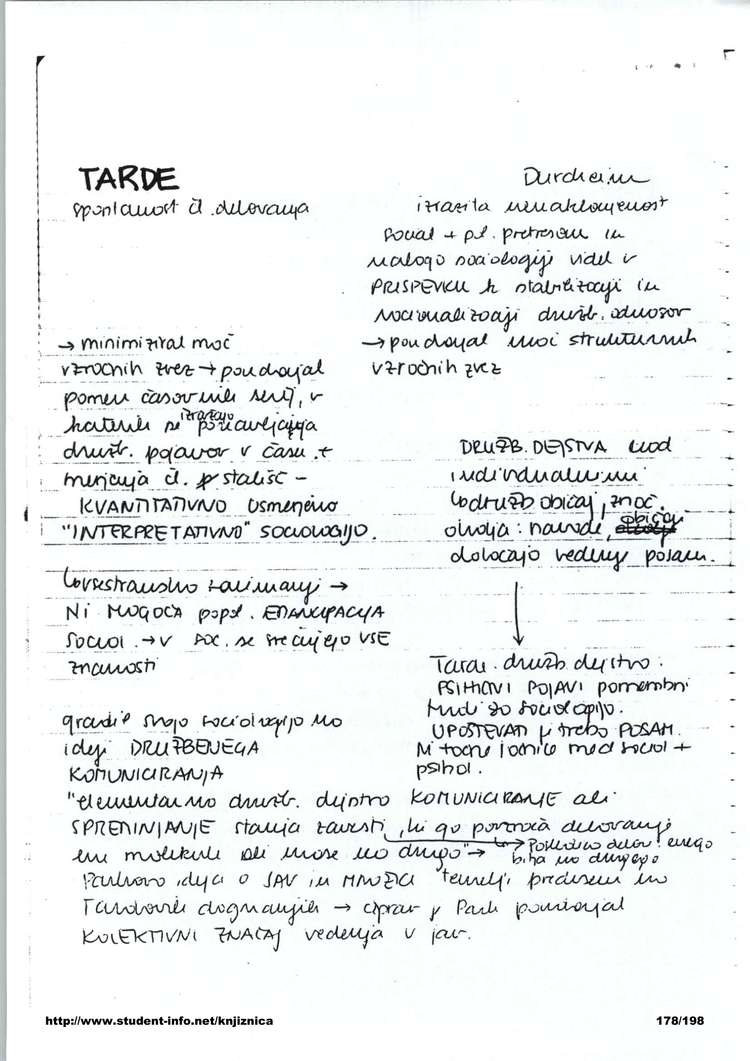 TARDE
spontanost čl. delovanja
→ minimiziral moč
vzročnih zvez → poudarjal
pomen časovnih serij, v
katerih se izražajo ponavljanja
družb. pojavov v času +
merjenja čl. stališč –
KVANTITATIVNO usmerjeno
"INTERPRETATIVNO" SOCIOLOGIJO.
vsestransko zanimanje →
NI MOGOČA popol. EMANCIPACIJA
SOCIOL. → V SOC. se srečujejo VSE
znanosti
gradil svojo sociologijo na
ideji DRUŽBENEGA
KOMUNICIRANJA
Durkheim
izrazita nenaklonjenost
social + pol. pretresom in
nalogo sociologije videl v
PRISPEVKU k stabilizaciji in
racionalizaciji družb. odnosov
→ poudarjal moč strukturnih
vzročnih zvez
DRUŽB. DEJSTVA nad
individualnimi
družb običaj, znač.
okolja: navade, običaji
določajo vedenje posam.
Tarde: družb dejstvo:
PSIHIČNI POJAVI pomembni
tudi za sociologijo.
UPOŠTEVATI je treba POSAM.
Ni točne ločnice med sociol +
psihol.
"elementarno družb. dejstvo KOMUNICIRANJE ali
SPREMINJANJE stanja zavesti, ki ga povzroča delovanje
ene molekule ali mase na drugo" → Posledica delov. enega
bitja na drugega
Parkova ideja o JAV in MNOŽICI temelji predvsem na
Tardovih dognanjih → čeprav je Park poudarjal
KOLEKTIVNI ZNAČAJ vedenja v jav.
http://www.student-info.net/knjiznica
178/198